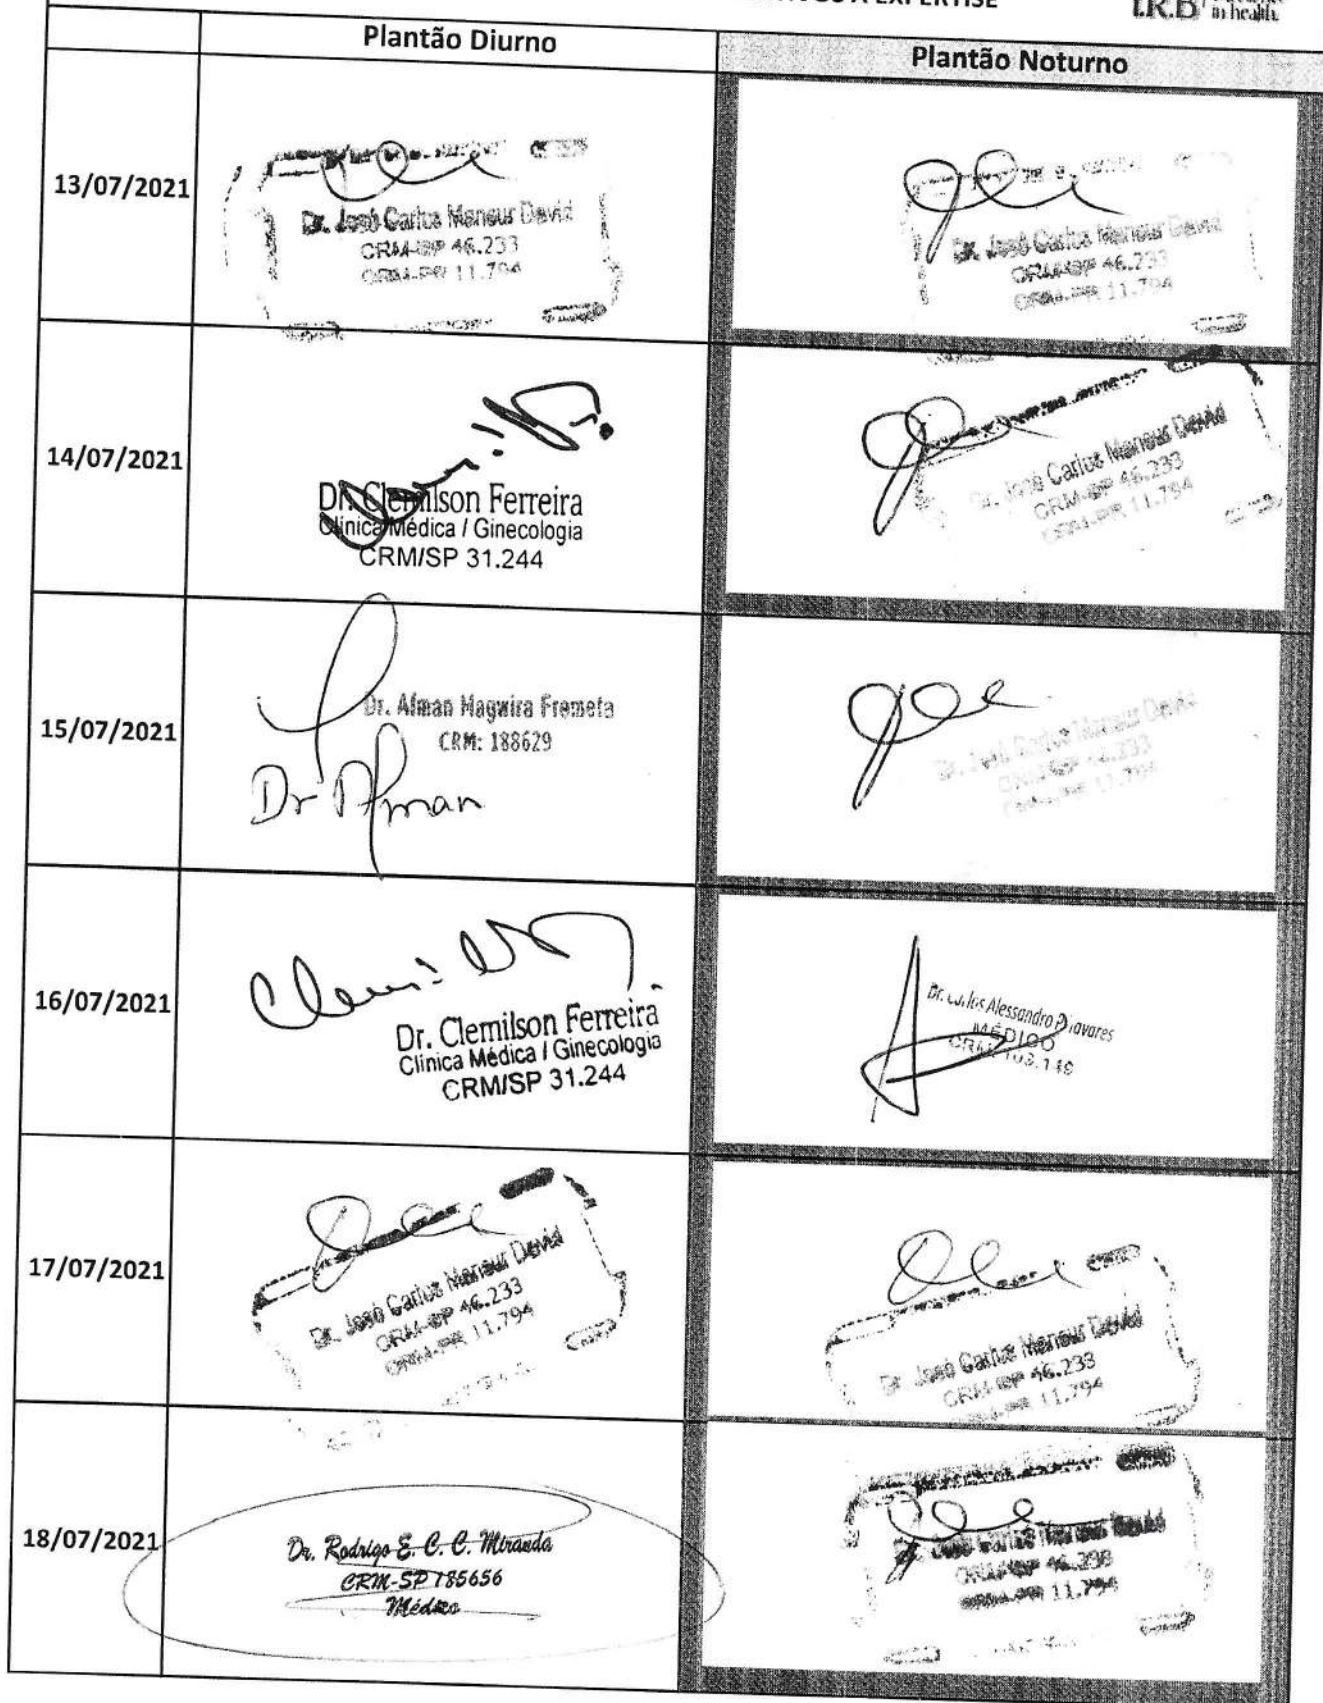 A EXPERTISE
I.R.D
in health.
Plantão Diurno
Plantão Noturno
13/07/2021
Dr. José Carlos Mansur David
CRM-SP 46.233
CRM-PR 11.794
Dr. José Carlos Mansur David
CRM-SP 46.233
CRM-PR 11.794
14/07/2021
Dr. Clemilson Ferreira
Clínica Médica / Ginecologia
CRM/SP 31.244
Dr. José Carlos Mansur David
CRM-SP 46.233
CRM-PR 11.794
15/07/2021
Dr. Afman Magwira Fremeta
CRM: 188629
Dr Afman
Dr. José Carlos Mansur David
CRM-SP 46.233
CRM-PR 11.794
16/07/2021
Dr. Clemilson Ferreira
Clínica Médica / Ginecologia
CRM/SP 31.244
Dr. Carlos Alessandro Tavares
MÉDICO
CRM 103.149
17/07/2021
Dr. José Carlos Mansur David
CRM-SP 46.233
CRM-PR 11.794
Dr. José Carlos Mansur David
CRM-SP 46.233
CRM-PR 11.794
18/07/2021
Dr. Rodrigo E. C. C. Miranda
CRM-SP 185656
Médico
Dr. José Carlos Mansur David
CRM-SP 46.233
CRM-PR 11.794